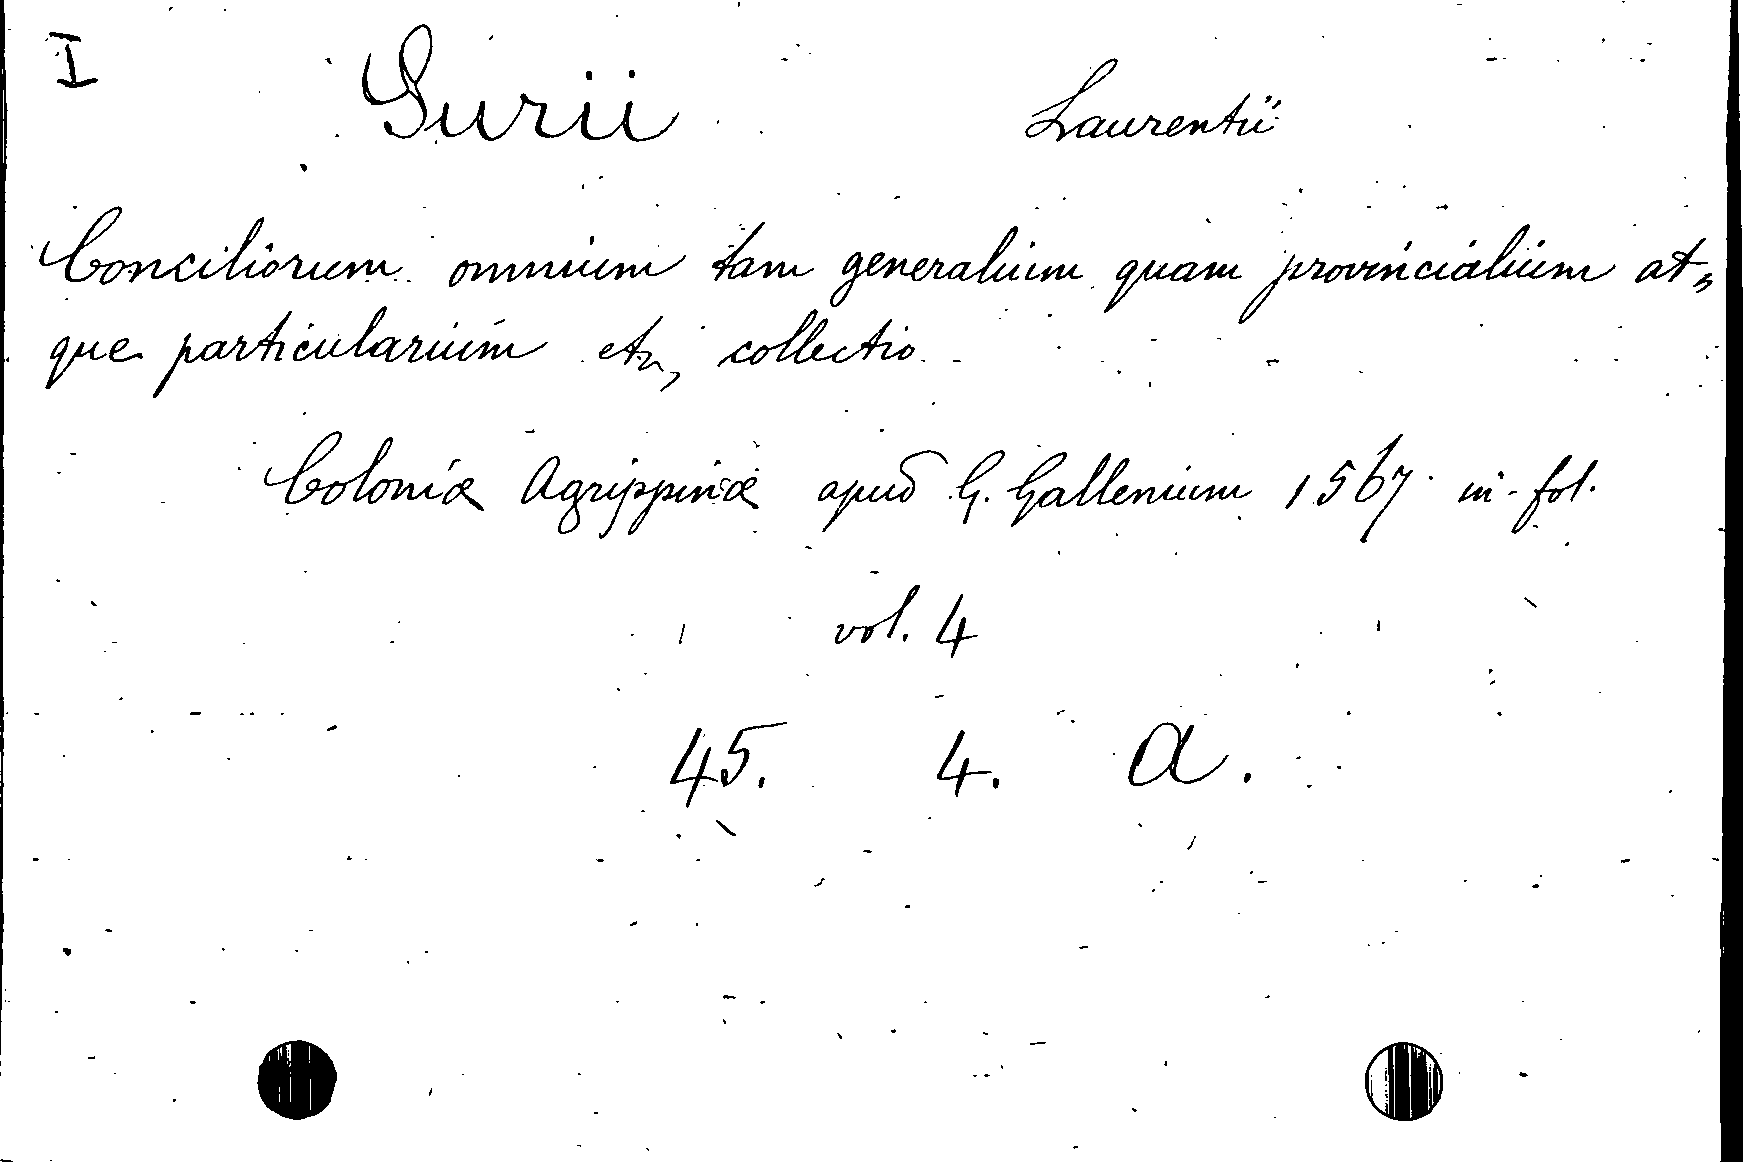 I Surii Laurentii
Conciliorum omnium tam generalium quam provincialium at„
que particularium etc, collectio
Coloniæ Agrippinæ apud G. Gallenium 1567 in-fol.
vol. 4
45. 4. a.